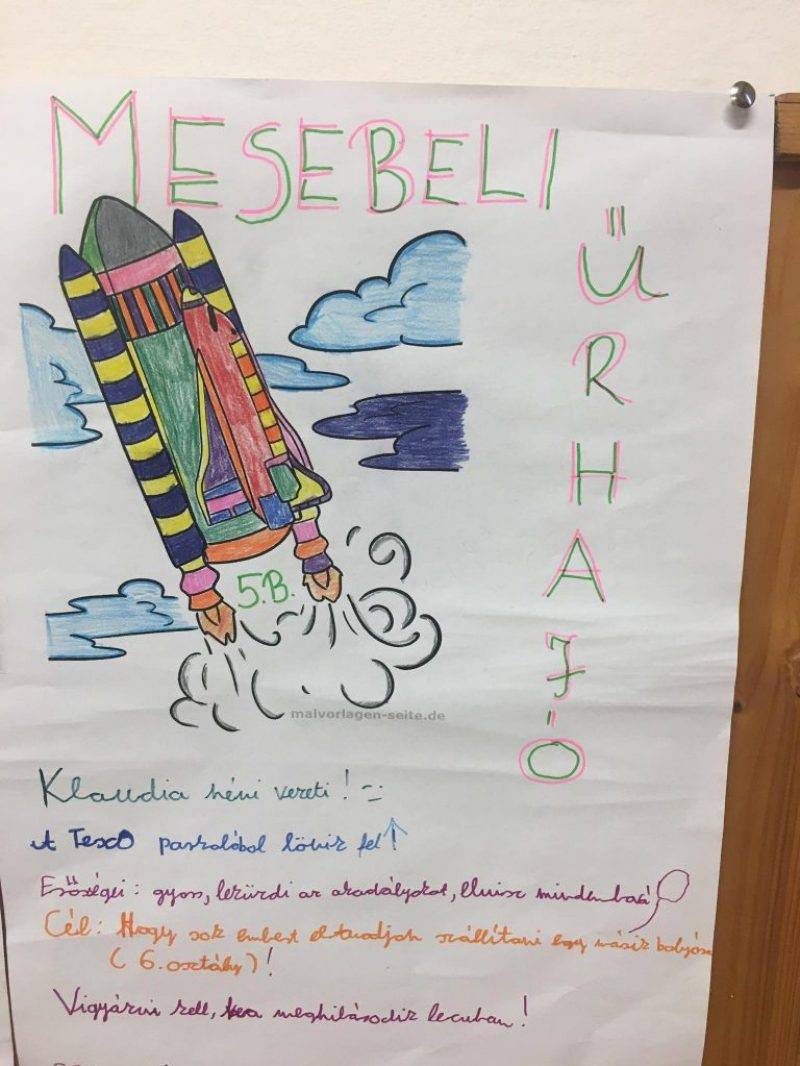 MESEBELI
ŰRHAJÓ
5.B.
malvorlagen-seite.de
Klaudia néni vezeti! :-)
A TESCO parkolóból lövik fel ↑
Erősségei: gyors, lekűrdi az akadályokat, elvisz mindenhová
Cél: Hogy sok embert el tudjon szállítani egy másik bolygóra
(6. osztály)!
Vigyázni kell, ha meghibásodik lezuhan!